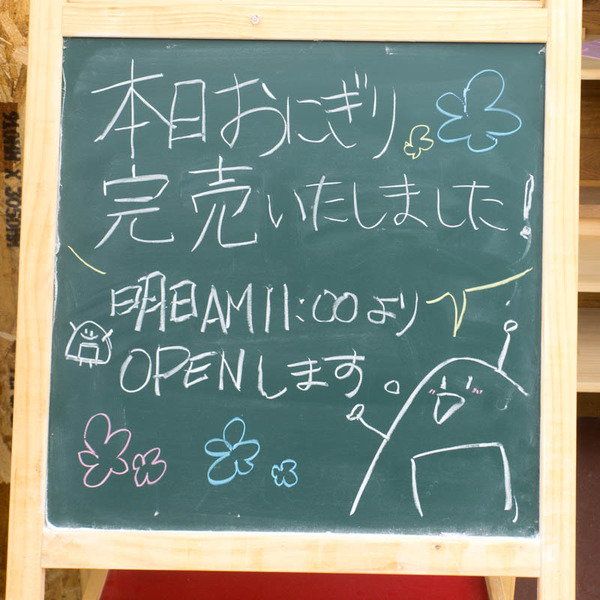 本日おにぎり
完売いたしました!
明日AM11:00より
OPENします。